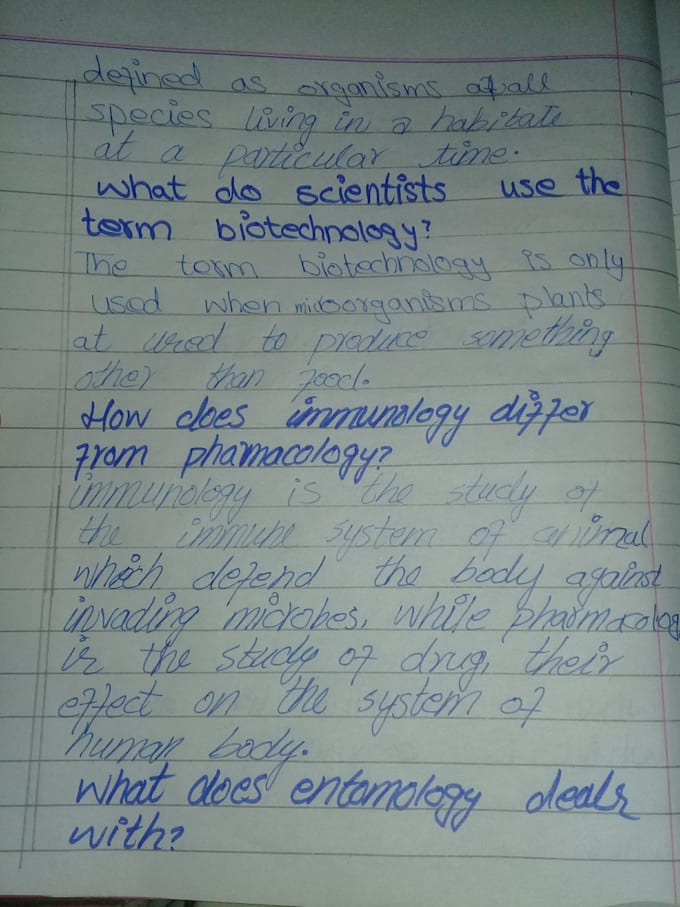 defined as organisms of all
species living in a habitate
at a particular time.
What do scientists use the
term biotechnology?
The term biotechnology is only
used when microorganisms plants
at used to produce something
other than food.
How does immunology differ
from phamacology?
immunology is the study of
the immune system of animal
which defend the body against
invading microbes, while pharmacolog
is the study of drug, their
effect on the system of
human body.
What does entomology deals
with?